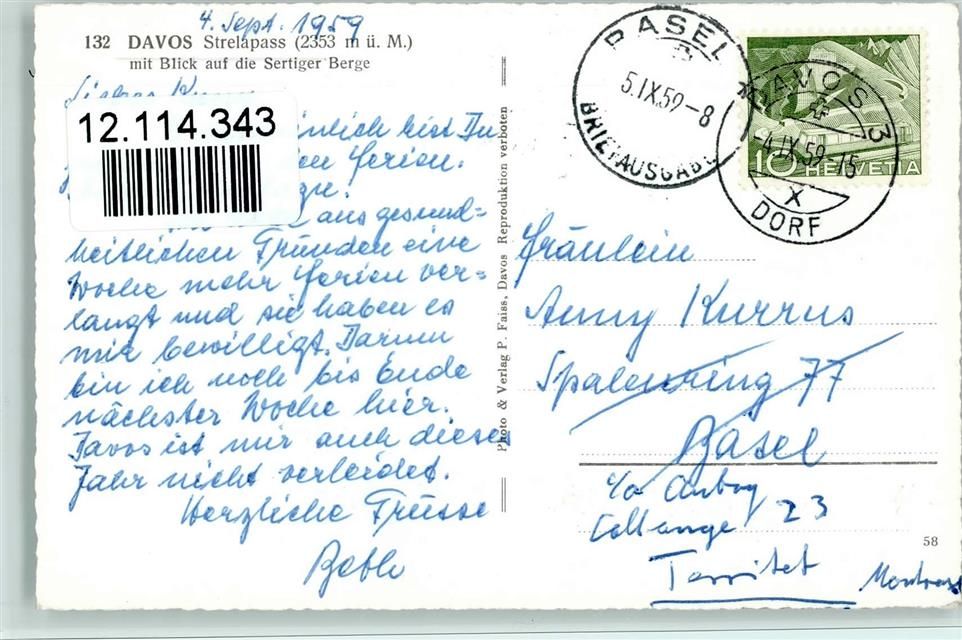 4. Sept. 1959
132 DAVOS Strelapass (2353 m ü. M.)
mit Blick auf die Sertiger Berge
12.114.343
hist Du
Ferien.
aus gesund=
heitlichen Gründen eine
Woche mehr Ferien ver=
langt und sie haben es
mir bewilligt. Darum
bin ich noch bis Ende
nächster Woche hier.
Davos ist mir auch dieses
Jahr nicht verleidet.
Herzliche Grüsse
Photo & Verlag P. Faiss, Davos Reproduktion verboten
BASEL
5.IX.59-8
BRIEFAUSGABE
DAVOS 3
-4.IX.59-15
X
DORF
10 HELVETIA
Fräulein
Anny Kurrus
Spalenring 77
Basel
c/o
Collonge 23
Territet Montreux
58